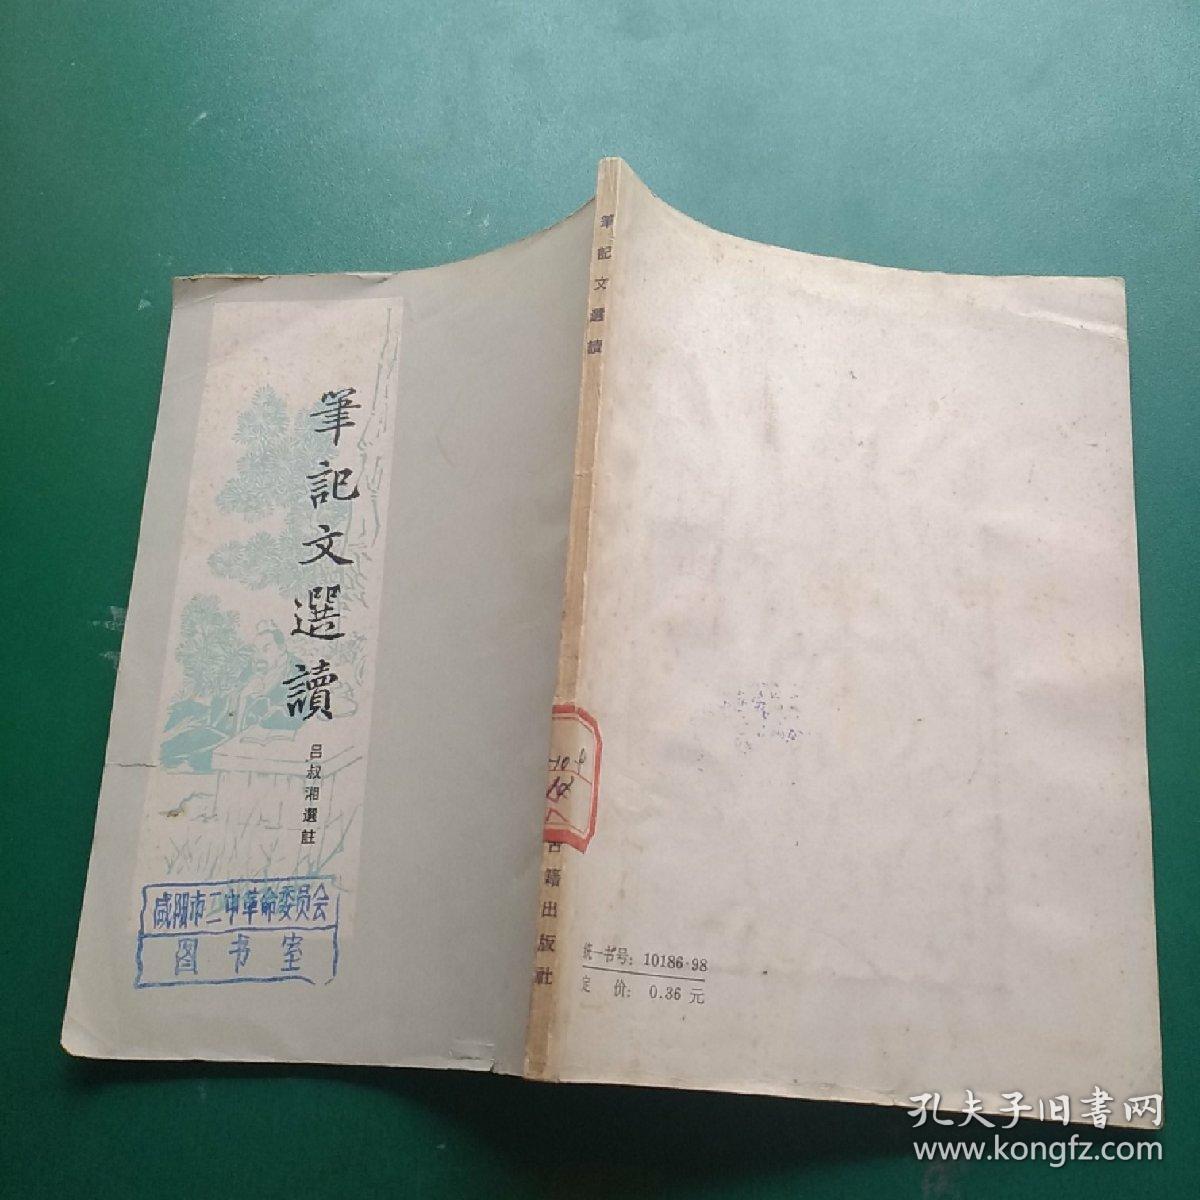 筆記文選讀
吕叔湘選註
咸阳市二中革命委员会
图书室
筆記文選讀
古籍出版社
统一书号：10186·98
定 价： 0.36 元
孔夫子旧书网
www.kongfz.com